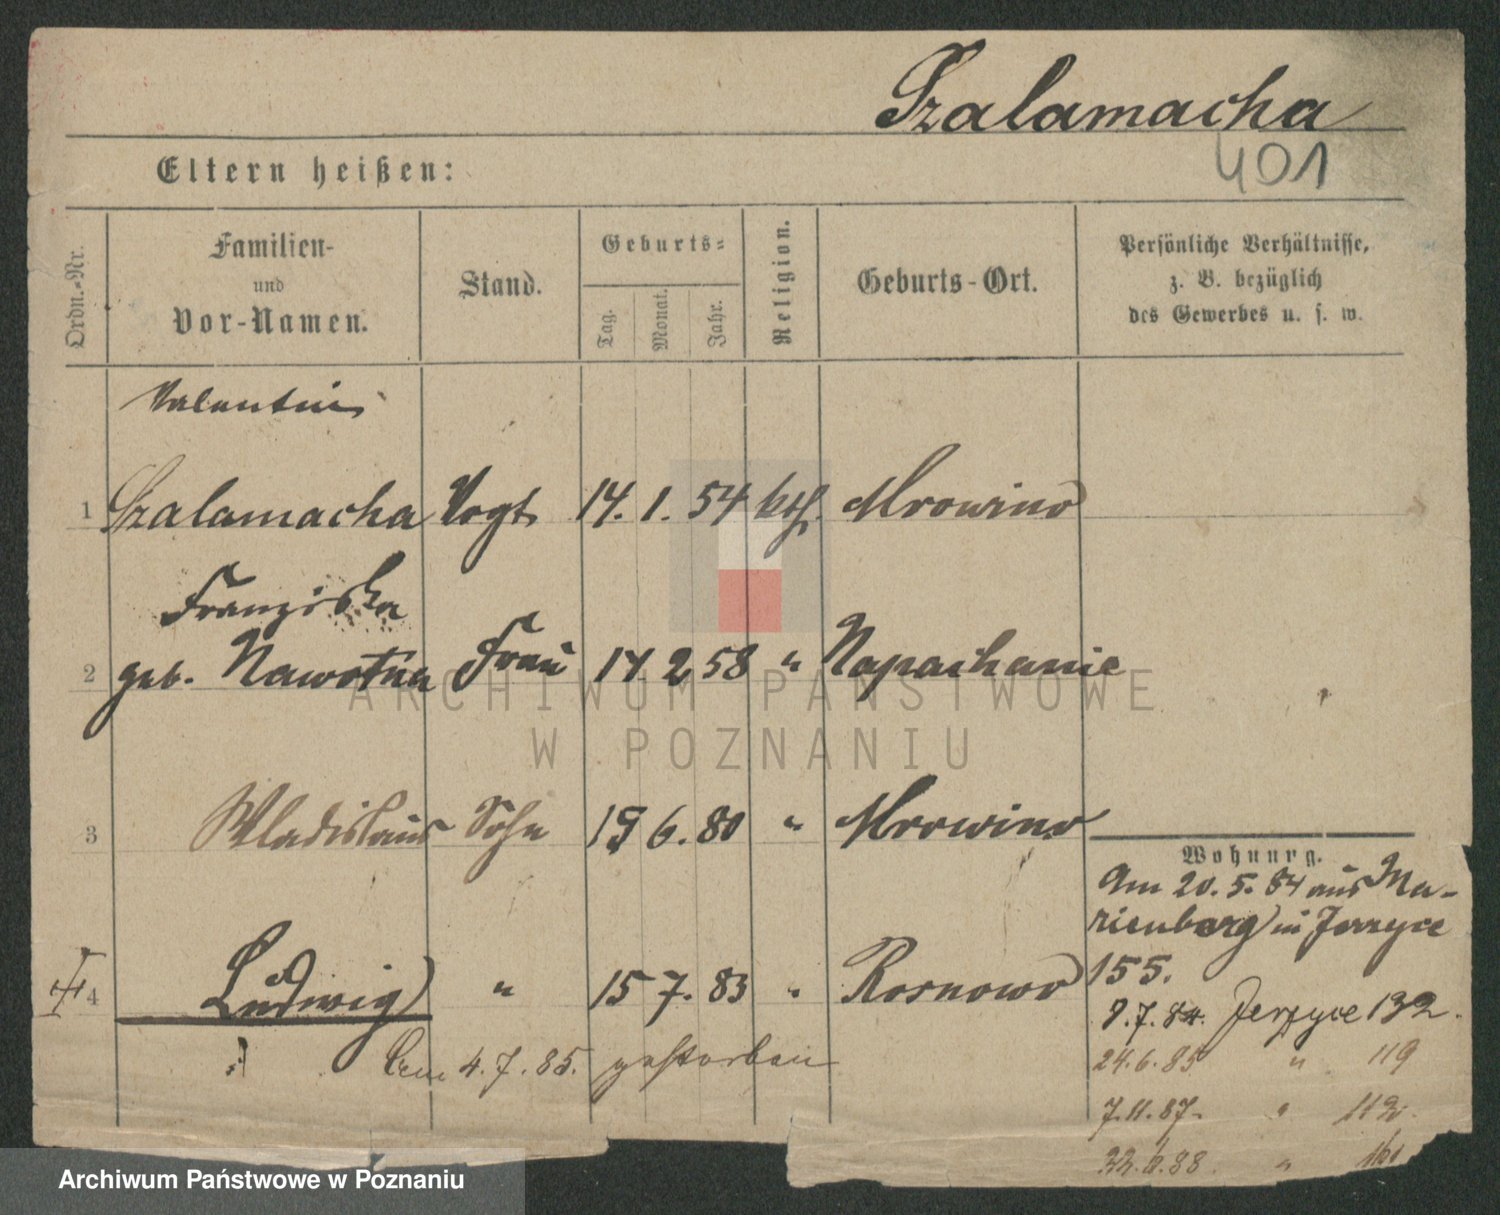 Szalamacha
401
Eltern heißen:
Ordn.-Nr.
Familien-
und
Vor-Namen.
Stand.
Geburts-
Tag.
Monat.
Jahr.
Religion.
Geburts-Ort.
Persönliche Verhältnisse,
z. B. bezüglich
des Gewerbes u. s. w.
Valentin
1 Szalamacha Vogt 14. 1. 54 kth. Mrowino
Franziska
2 geb. Nawotna Frau 14 2 58 " Napachanie
3 Wladislaus Sohn 19 6. 80 " Mrowino
4 Ludwig " 15 7. 83 " Rosnowo
4. 7. 85. gestorben
Wohnung.
Am 20. 5. 84 aus Ma-
rienberg in Jerzyce
155.
8. 7. 84. Jerzyce 132.
24. 6. 85 " 119
7. 11. 87. " 112.
22. 6. 88. "
ARCHIWUM PAŃSTWOWE
W POZNANIU
Archiwum Państwowe w Poznaniu